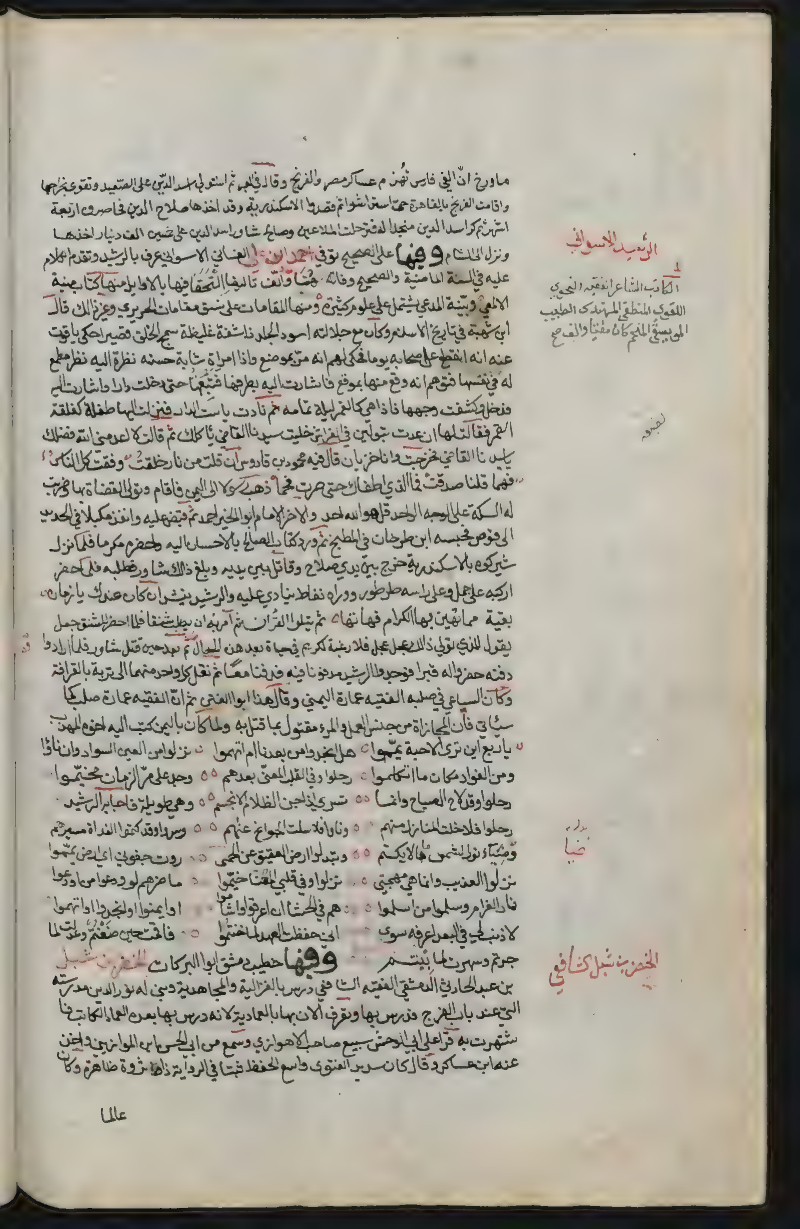 ما ورخ ان الفي فارس تهزم عساكر مصر والفرنج وقال في العبر ثم استولى اسد الدين على الصعيد وتقوى بخراجها
واقامت الفرنج بالقاهرة حتى استراشوا ثم قصدوا الاسكندرية وقد اخذها صلاح الدين فحاصروه اربعة
اشهر ثم كر اسد الدين منجدا له فترحلت الملاعين وصالح شاور اسد الدين على خمسين الف دينار اخذها
ونزل الى الشام وفيها على الصحيح توفي احمد بن علي الغساني الاسواني يعرف بالرشيد وتقدم الكلام
عليه في السنة الماضية والصحيح وفاته هنا وألف تآليف التحق فيها بالاوايل منها كتاب منية
الالمعي وبنية المدعي تشتمل على علوم كثيرة ومنها المقامات على نسق مقامات الحريري وغير ذلك قال
ابن شهبة في تاريخ الاسلام وكان مع جلالته اسود الجلد ذا شفة غليظة سمج الخلق قصيرا حكى ياقوت
عنه انه انقطع عن اصحابه يوما فحكى لهم انه مر بموضع واذا امراة شابة حسنة نظرة اليه نظر مطمع
له في نفسها فتوهم انه وقع منها بموقع فاشارت اليه بطرفها فتبعها حتى دخلت دارا واشارت اليه
فدخل وكشفت وجهها فاذا هي كالقمر ليلة تمامه ثم نادت يا ست الدار فنزلت اليها طفلة كفلقة
القمر فقالت لها ان عدت تبولين في الفراش خليت سيدنا القاضي ياكلك ثم قالت لا اعدمني الله فضلك
يا سيدنا القاضي فخرجت وانا خزيان قال فيه محمود بن قادوس ان قلت من نار خلقت وفقت كل الناس
فهما قلنا صدقت فما الذي اطفاك حتى صرت فحما ذهب رسولا الى اليمن فاقام وتولى القضاة بها وضرب
له السكة على الوجه الواحد قل هو الله احد والاخر الامام ابو الخير احمد ثم قبض عليه وانفذ مكبلا في الحديد
الى قوص فحبسه ابن طرخان في المطبخ ثم ورد كتاب الصالح بالاحسان اليه واحضر مكرما فلما نزل
شيركوه بالاسكندرية خرج بين يدي صلاح وقاتل بين يديه وبلغ ذلك شاور فطلبه فلما حضر
اركبه على جمل وعلى راسه طرطور ووراه نفاط ينادي عليه والرشيد ينشد ان كان عندك يا زمان
بقية مما تهين بها الكرام فهاتها ثم يتلوا القران ثم امر به ان يصلب شنقا فلما احضر للشنق جعل
يقول للذي تولى ذلك عجل عجل فلا رغبة لكريم في حياة بعد هذه الحال ثم بعد حين قتل شاور فلما ارادوا
دفنه حفروا له قبرا فوجدوا الرشيد مدفونا فيه فدفنا معا ثم نقل كل واحد منهما الى تربة بالقرافة
وكان الساعي في صلبه الفقيه عمارة اليمني وقال هذا ابو الفتن ثم ان الفقيه عمارة صلب كما
سيأتي فان المجازاة من جنس العمل والمرء مقتول بما قتل به ولما كان باليمن كتب اليه اخوه المهذب
يا ربع اين ترى الاحبة يمموا هل انجدوا من بعدنا ام اتهموا نزلوا من العين السواد وان ناوا
ومن الفواد مكان ما انا كاتم رحلوا وفي القلب المعنى بعدهم وجد على مر الزمان مخيم
رحلوا وقد لاح الصباح وانما تسري اذا جن الظلام الانجم وهي طويلة فاجابه الرشيد
رحلوا فلا خلت المنازل منهم وناوا فلا سلت الجوانح عنهم وسروا وقد كتموا الغداة مسيرهم
وضياء نور الشمس ما لا يكتم وتبدلوا ارض العقيق عن الحمى روت جفوني اي ارض يمموا
نزلوا العذيب وانما هي مهجتي نزلوا وفي قلبي المعنا خيموا ما ضرهم لو ودعوا من اودعوا
نار الغرام وسلموا من اسلموا هم في الحشا ان اعرقوا واشاموا او ايمنوا او انجدوا او اتهموا
لا ذنب لي في البعد اعرفه سوى اني حفظت العهد لما خنتموا فاقمت حين ظعنتم وعدلت لما
جرتم وسهرت لما نمتم وفيها خطيب دمشق ابو البركات الخضر بن شبل
بن عبد الحارثي الدمشقي الفقيه الشافعي درس بالغزالية والمجاهدية وبنى له نور الدين مدرسته
التي عند باب الفرج فدرس بها وتعرف الان بها بالعمادية لانه درس بها بعده العماد الكاتب فا
شتهرت به قرا على ابي الوحش سبيع صاحب الاهوازي وسمع من ابي الحسن ابن الموازيني واخذ
عنه ابن عساكر وقال كان سديد الفتوى واسع الحفظ ثبتا في الرواية ذا مروة ظاهرة وكان
عالما
الرشيد الاسواني
الكاتب الشاعر الفقيه النحوي
اللغوي المنطقي المهندس الطبيب
الموسيقي المنجم كان مفتيا
ضيا
الخضر بن شبل شافعي